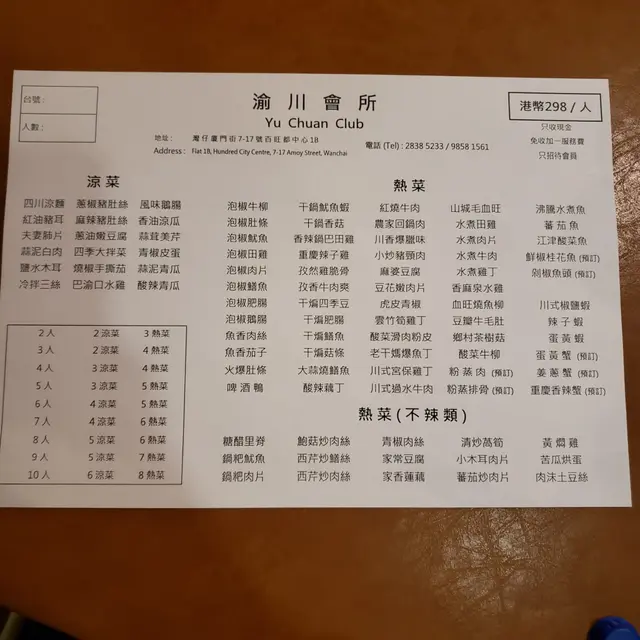 台號：
人數：
渝川會所
Yu Chuan Club
地址： 灣仔廈門街7-17號百旺都中心1B
Address： Flat 1B, Hundred City Centre, 7-17 Amoy Street, Wanchai
電話 (Tel) : 2838 5233 / 9858 1561
港幣298 / 人
只收現金
免收加一服務費
只招待會員
涼菜
四川涼麵 蔥椒豬肚絲 風味鵝腸
紅油豬耳 麻辣豬肚絲 香油涼瓜
夫妻肺片 蔥油嫩豆腐 蒜茸美芹
蒜泥白肉 四季大拌菜 青椒皮蛋
鹽水木耳 燒椒手撕茄 蒜泥青瓜
冷拌三絲 巴渝口水雞 酸辣青瓜
2 人 2 涼菜 3 熱菜
3 人 2 涼菜 4 熱菜
4 人 3 涼菜 4 熱菜
5 人 3 涼菜 5 熱菜
6 人 4 涼菜 5 熱菜
7 人 4 涼菜 6 熱菜
8 人 5 涼菜 6 熱菜
9 人 5 涼菜 7 熱菜
10 人 6 涼菜 8 熱菜
熱菜
泡椒牛柳 干鍋魷魚蝦 紅燒牛肉 山城毛血旺 沸騰水煮魚
泡椒肚條 干鍋香菇 農家回鍋肉 水煮田雞 蕃茄魚
泡椒魷魚 香辣鍋巴田雞 川香爆臘味 水煮肉片 江津酸菜魚
泡椒田雞 重慶辣子雞 小炒豬頸肉 水煮牛肉 鮮椒桂花魚 (預訂)
泡椒肉片 孜然雞脆骨 麻婆豆腐 水煮雞丁 剁椒魚頭 (預訂)
泡椒鱔魚 孜香牛肉爽 豆花嫩肉片 香麻泉水雞
泡椒肥腸 干煸四季豆 虎皮青椒 血旺燒魚柳 川式椒鹽蝦
泡椒鵝腸 干煸肥腸 雲竹筍雞丁 豆瓣牛毛肚 辣子蝦
魚香肉絲 干煸鱔魚 酸菜滑肉粉皮 鄉村茶樹菇 蛋黃蝦
魚香茄子 干煸菇條 老干媽爆魚丁 酸菜牛柳 蛋黃蟹 (預訂)
火爆肚條 大蒜燒鱔魚 川式宮保雞丁 粉蒸肉 (預訂) 姜蔥蟹 (預訂)
啤酒鴨 酸辣藕丁 川式過水牛肉 粉蒸排骨 (預訂) 重慶香辣蟹 (預訂)
熱菜(不辣類)
糖醋里脊 鮑菇炒肉絲 青椒肉絲 清炒萵筍 黃燜雞
鍋粑魷魚 西芹炒鱔絲 家常豆腐 小木耳肉片 苦瓜烘蛋
鍋粑肉片 西芹炒肉絲 家香蓮藕 蕃茄炒肉片 肉沫土豆絲